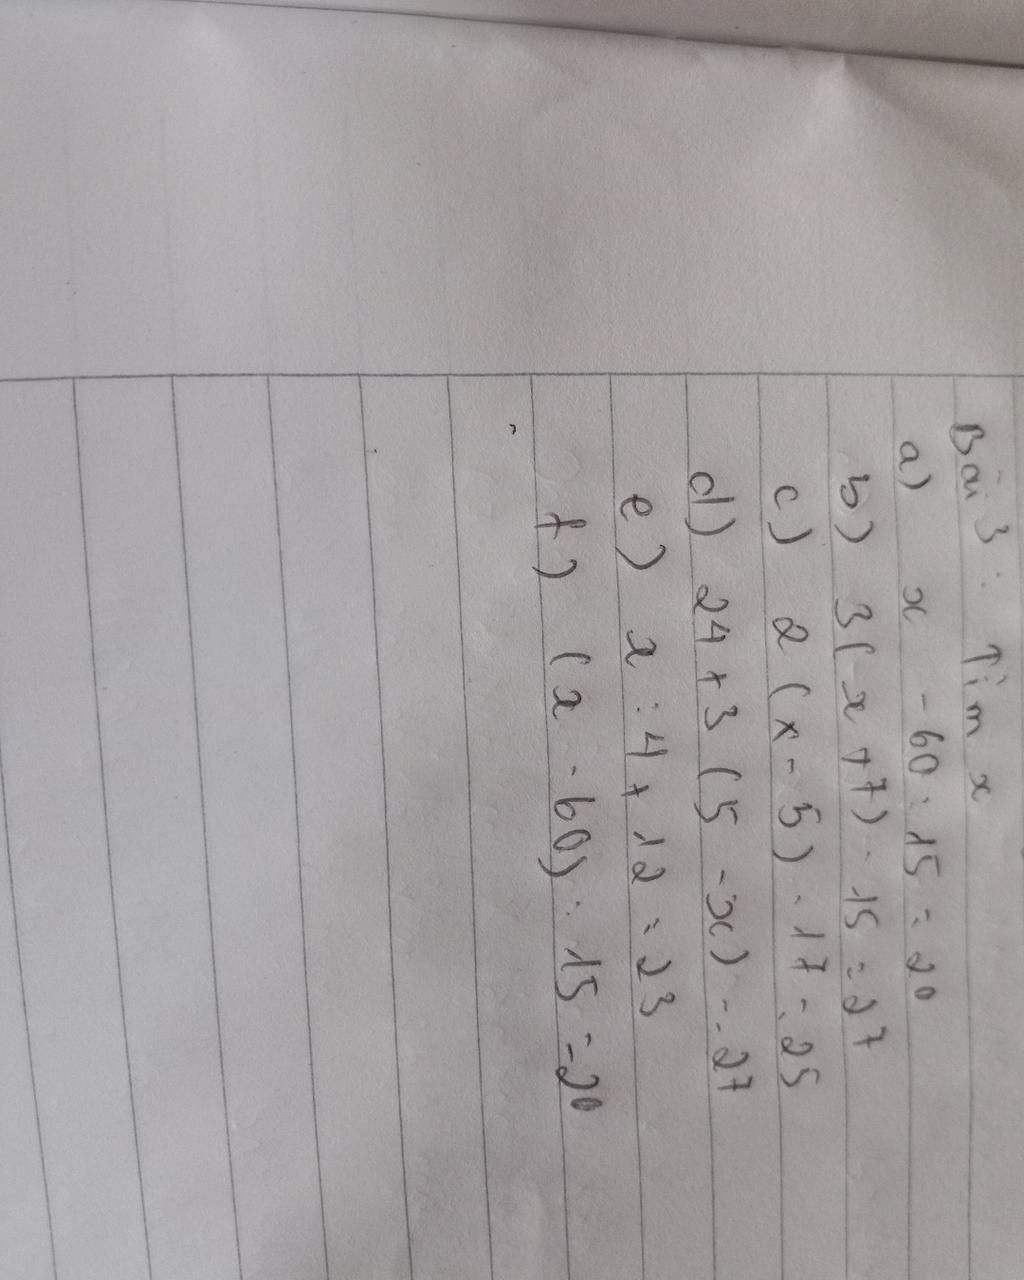 Bài 3 : Tìm x
a) x - 60 : 15 = 20
b) 3(x + 7) - 15 = 27
c) 2 (x - 5) - 17 = 25
d) 24 + 3 (5 - x) = 27
e) x : 4 + 12 = 23
f) (x - 60) : 15 = 20